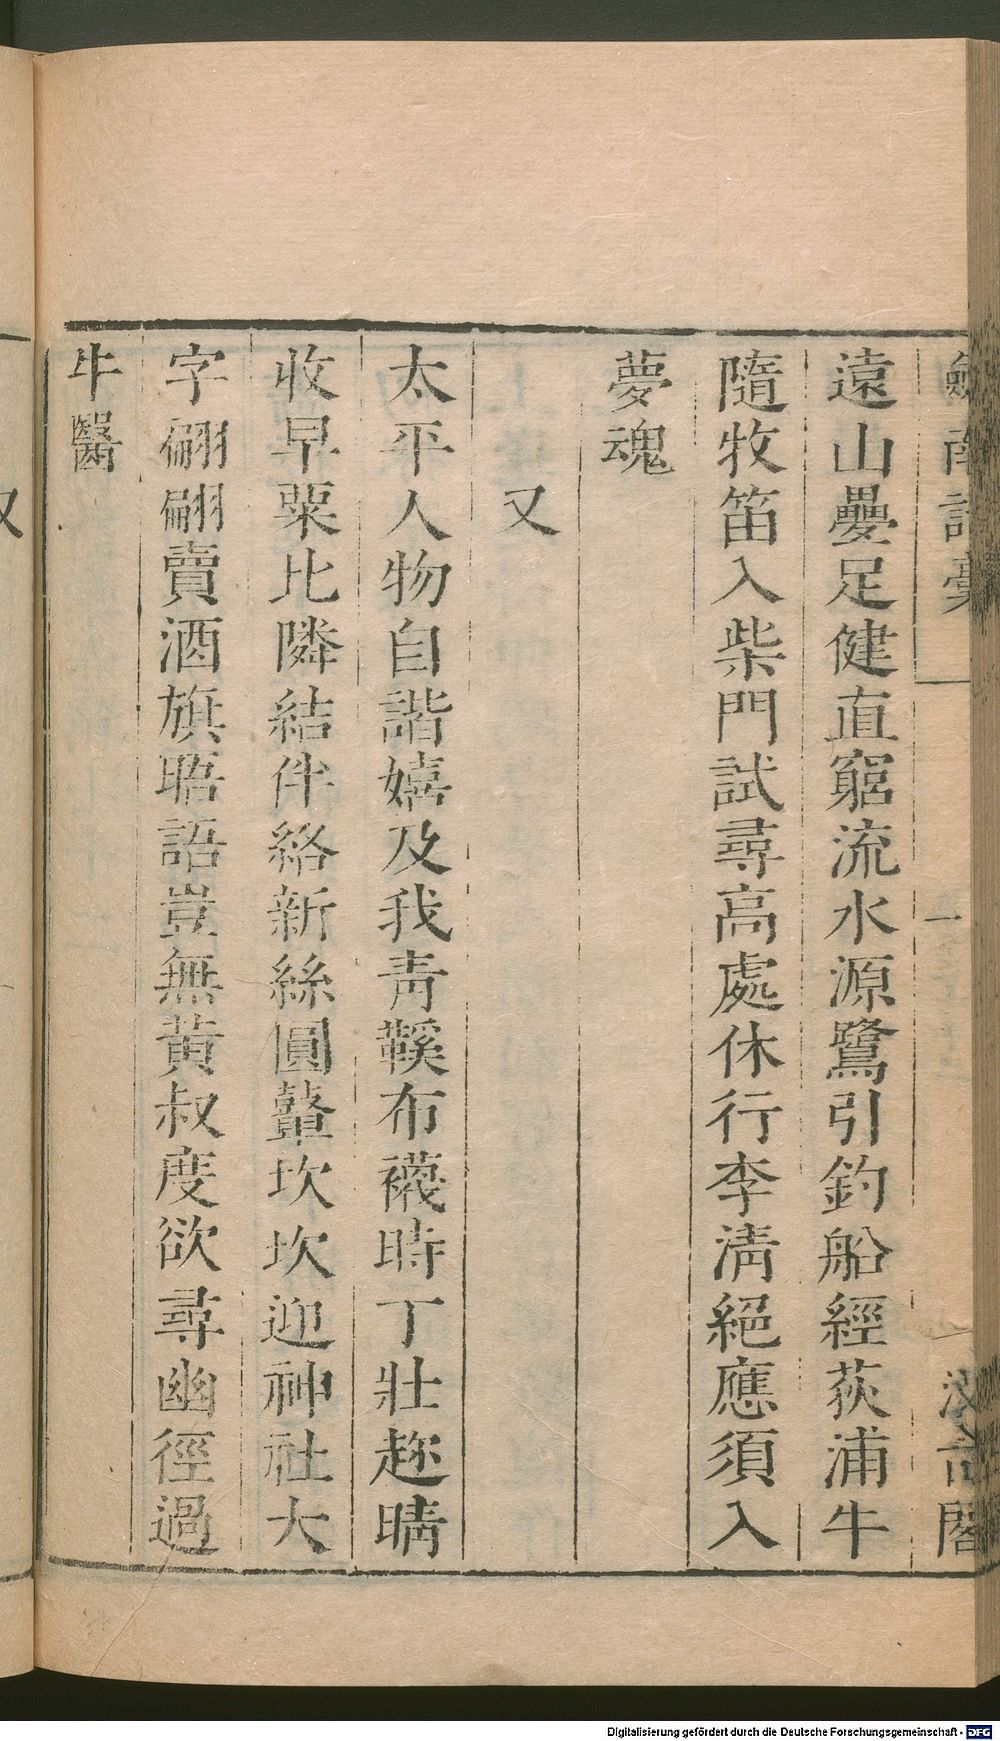 劎南詩稾 一 汲古閣
遠山疊足健直窮流水源鷺引釣船經荻浦牛
隨牧笛入柴門試尋高處休行李淸絕應須入
夢魂
又
太平人物自諧嬉及我靑鞵布襪時丁壯趂晴
收早粟比隣結伴絡新絲圓鼙坎坎迎神社大
字翩翩賣酒旗晤語豈無黃叔度欲尋幽徑過
牛醫
又
Digitalisierung gefördert durch die Deutsche Forschungsgemeinschaft - DFG